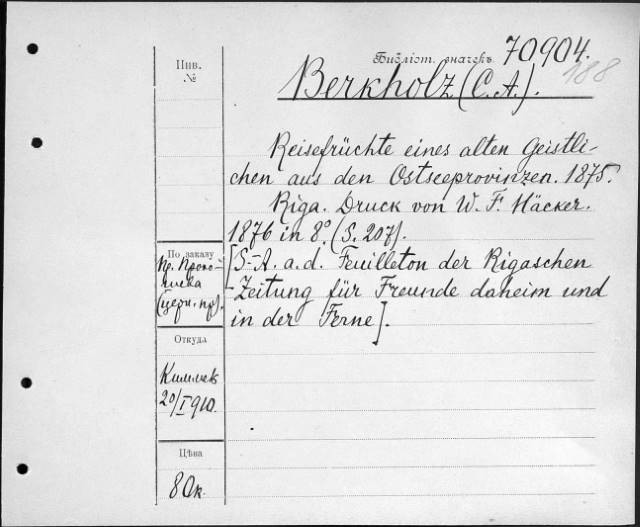 Библіот. значекъ 70904.
188
Инв.
№
Berkholz (C. A.).
Reisefrüchte eines alten Geistli-
chen aus den Ostseeprovinzen. 1875.
Riga. Druck von W. F. Häcker.
1876 in 8° (S. 207).
[S-A. a. d. Feuilleton der Rigaschen
Zeitung für Freunde daheim und
in der Ferne].
По заказу
Пр.
Откуда
Киммель
20/I 910.
Цѣна
80к.